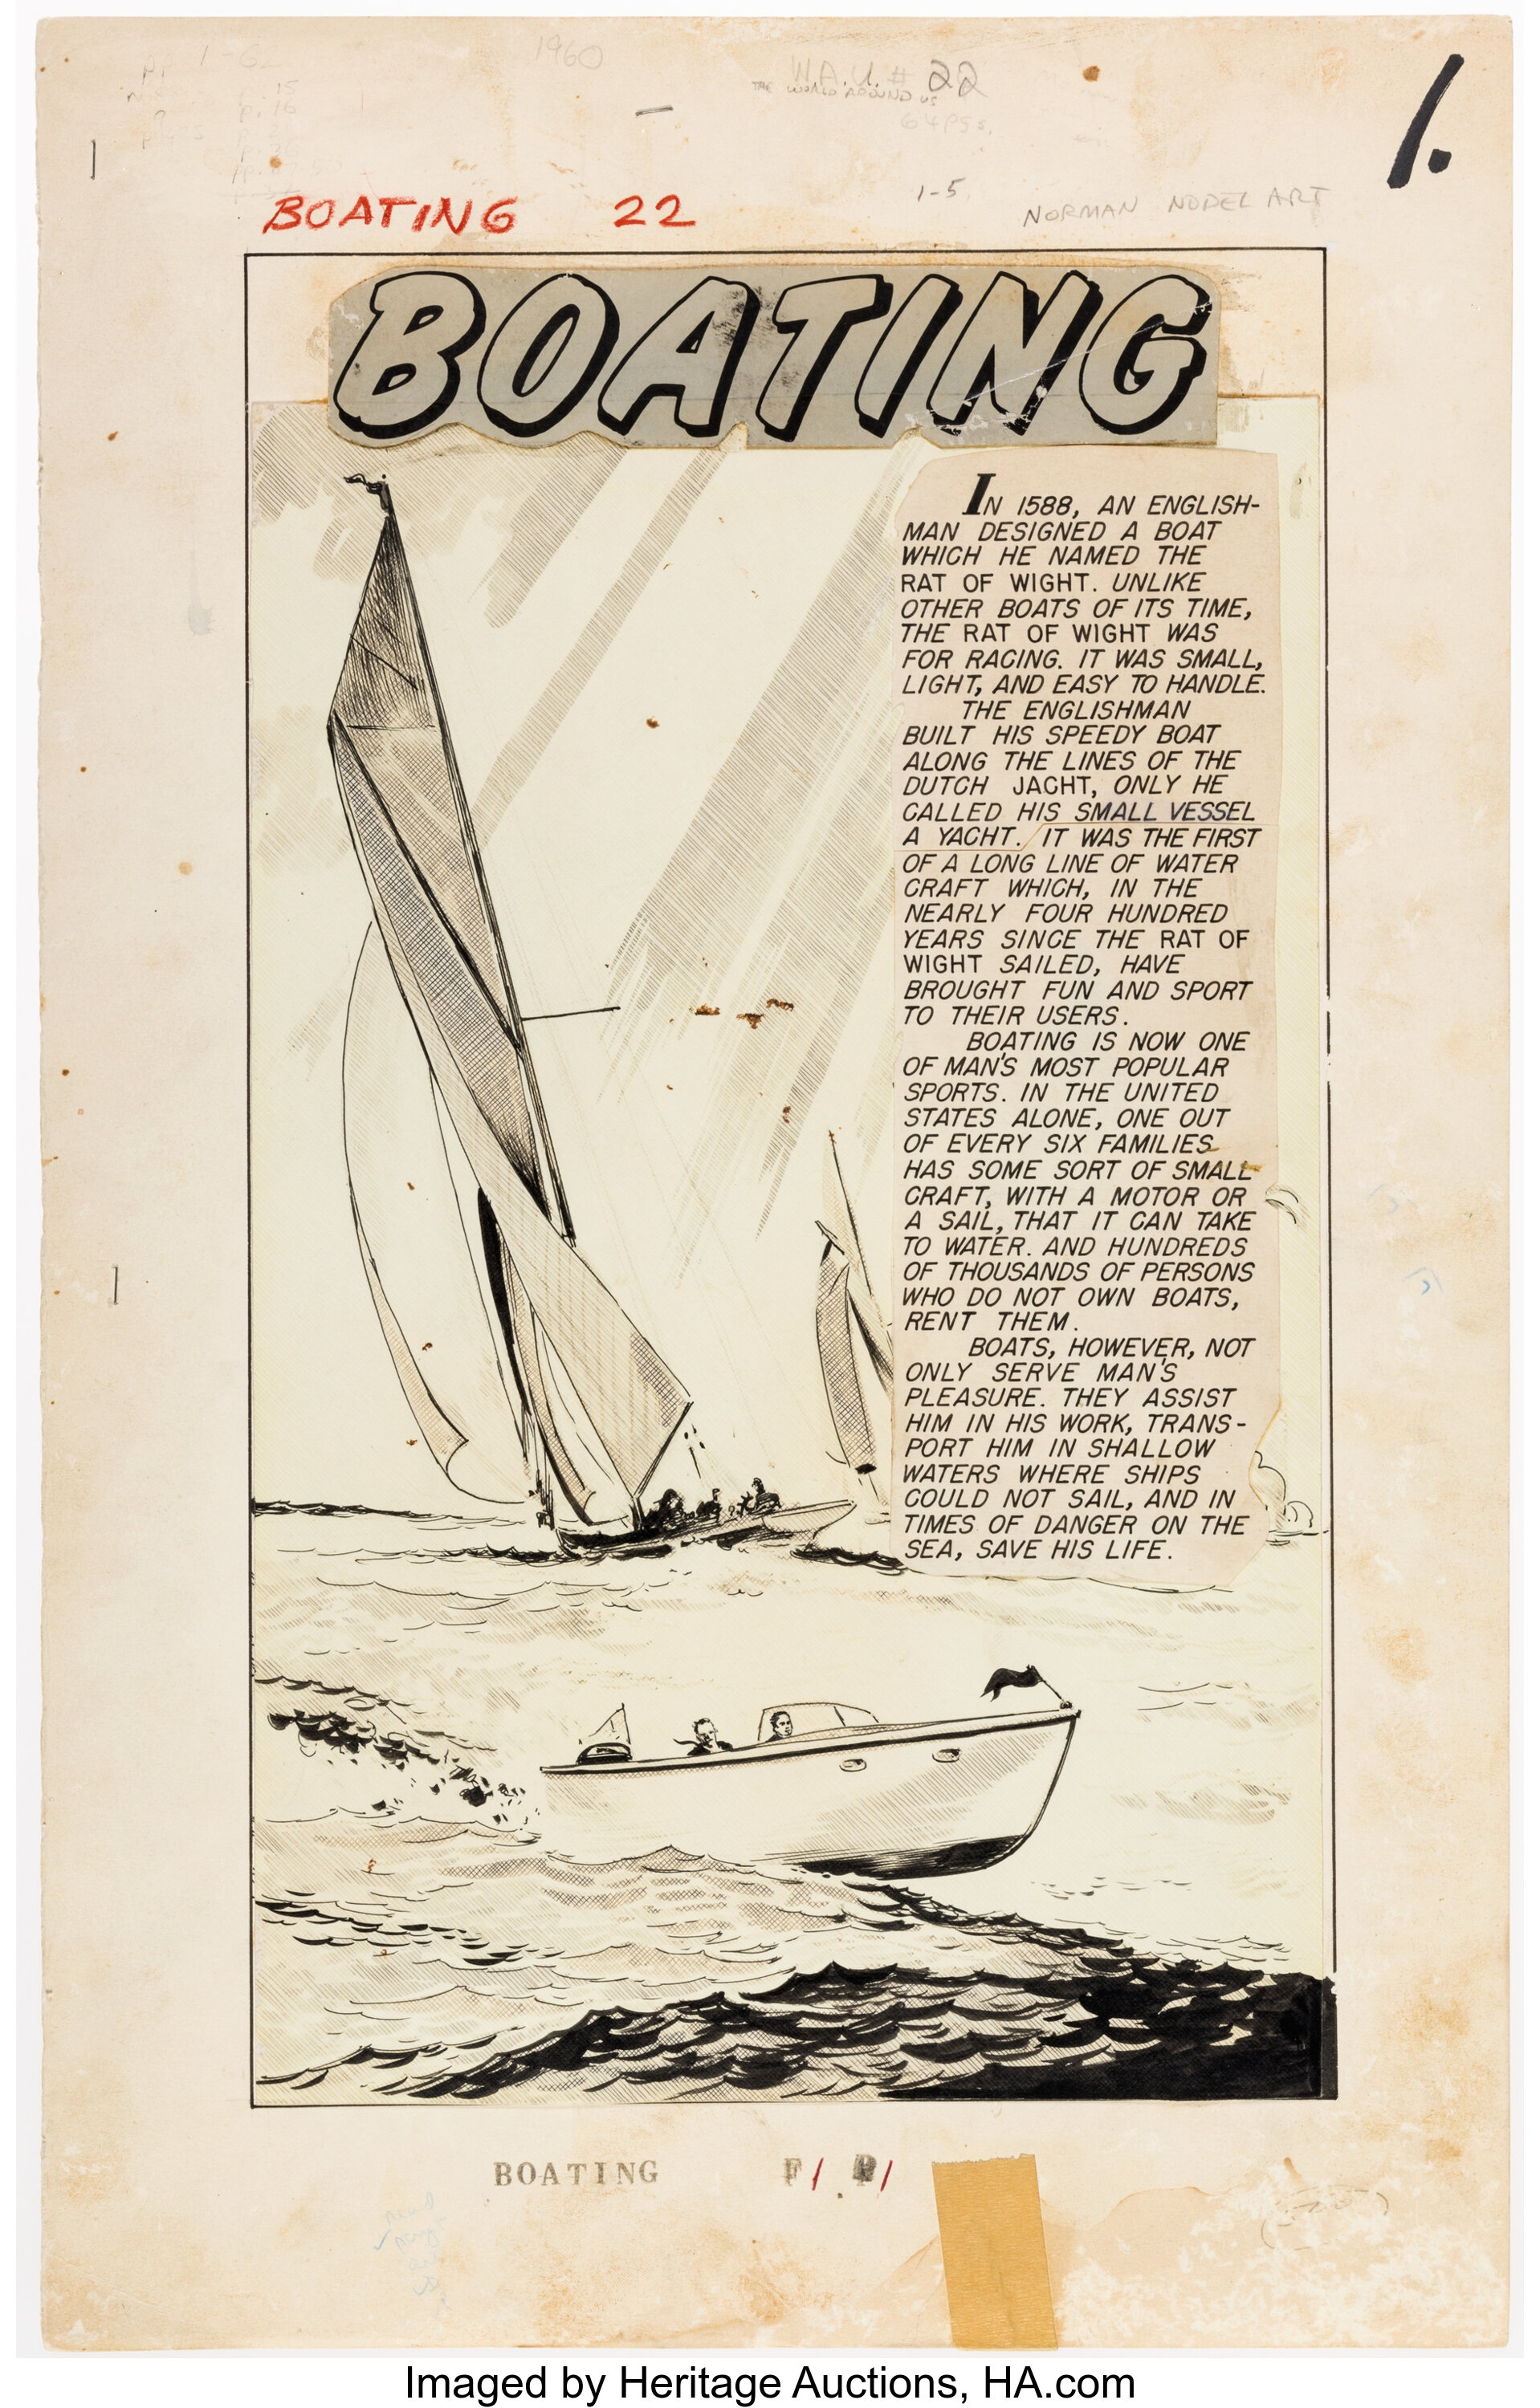 1960
W.A.U. # 22
THE WORLD AROUND US
64 PGS.
1.
BOATING 22
1-5
NORMAN NODEL ART
BOATING
IN 1588, AN ENGLISH-
MAN DESIGNED A BOAT
WHICH HE NAMED THE
RAT OF WIGHT. UNLIKE
OTHER BOATS OF ITS TIME,
THE RAT OF WIGHT WAS
FOR RACING. IT WAS SMALL,
LIGHT, AND EASY TO HANDLE.
THE ENGLISHMAN
BUILT HIS SPEEDY BOAT
ALONG THE LINES OF THE
DUTCH JACHT, ONLY HE
CALLED HIS SMALL VESSEL
A YACHT. IT WAS THE FIRST
OF A LONG LINE OF WATER
CRAFT WHICH, IN THE
NEARLY FOUR HUNDRED
YEARS SINCE THE RAT OF
WIGHT SAILED, HAVE
BROUGHT FUN AND SPORT
TO THEIR USERS.
BOATING IS NOW ONE
OF MAN'S MOST POPULAR
SPORTS. IN THE UNITED
STATES ALONE, ONE OUT
OF EVERY SIX FAMILIES
HAS SOME SORT OF SMALL
CRAFT, WITH A MOTOR OR
A SAIL, THAT IT CAN TAKE
TO WATER. AND HUNDREDS
OF THOUSANDS OF PERSONS
WHO DO NOT OWN BOATS,
RENT THEM.
BOATS, HOWEVER, NOT
ONLY SERVE MAN'S
PLEASURE. THEY ASSIST
HIM IN HIS WORK, TRANS-
PORT HIM IN SHALLOW
WATERS WHERE SHIPS
COULD NOT SAIL, AND IN
TIMES OF DANGER ON THE
SEA, SAVE HIS LIFE.
BOATING F1. P1
Imaged by Heritage Auctions, HA.com